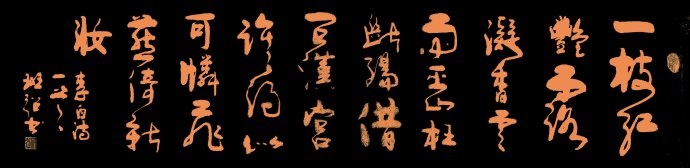 一枝紅
豔露
凝香雲
雨巫山枉
斷腸借
問漢宮
誰得似
可憐飛
燕倚新
妝
李白詩
一首
书